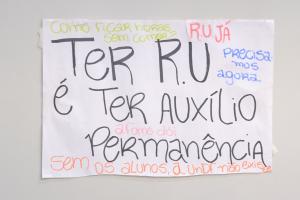 COMO FICAR HORAS
SEM COMER?
RU JÁ
TER R.U
PRECISA-
MOS
AGORA
É TER AUXÍLIO
a fome dói
PERMANÊNCIA
SEM OS ALUNOS, A UNDF NÃO EXISTE